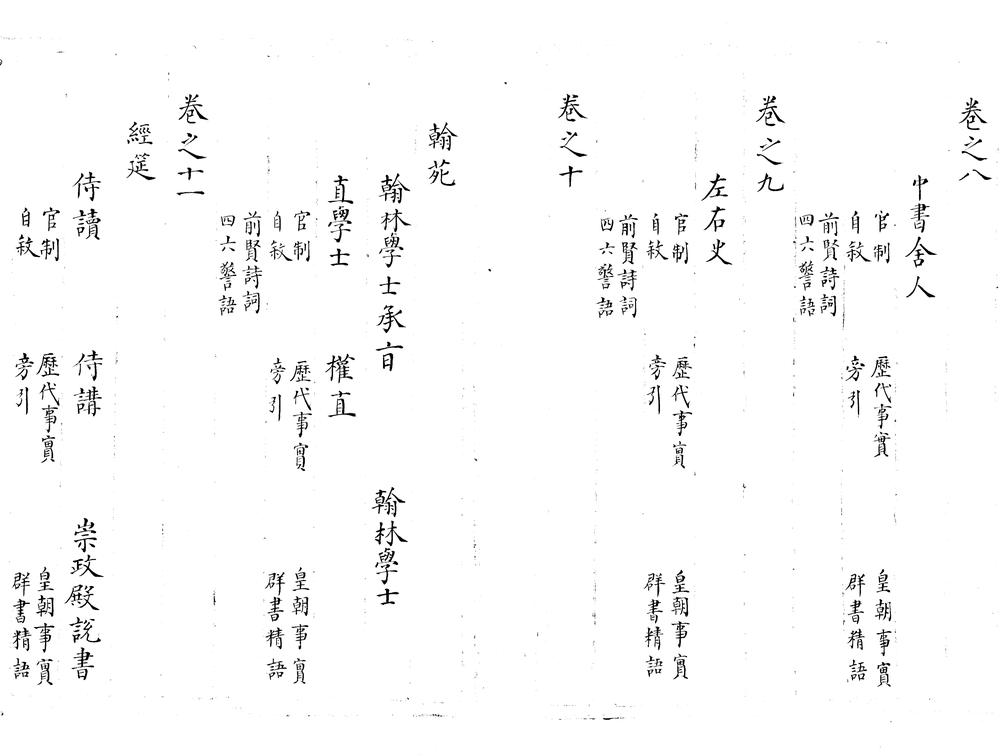 卷之八
中書舍人
官制 歷代事實 皇朝事實
自敘 旁引 群書精語
前賢詩詞
四六警語
卷之九
左右史
官制 歷代事實 皇朝事實
自敘 旁引 群書精語
前賢詩詞
四六警語
卷之十
翰苑
翰林學士承㫖 翰林學士
直學士 權直
官制 歷代事實 皇朝事實
自敘 旁引 群書精語
前賢詩詞
四六警語
卷之十一
經筵
侍讀 侍講 崇政殿說書
官制 歷代事實 皇朝事實
自敘 旁引 群書精語